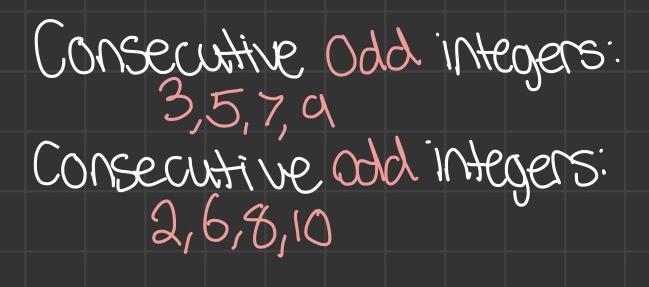 Consecutive Odd integers:
3,5,7,9
Consecutive odd integers:
2,6,8,10